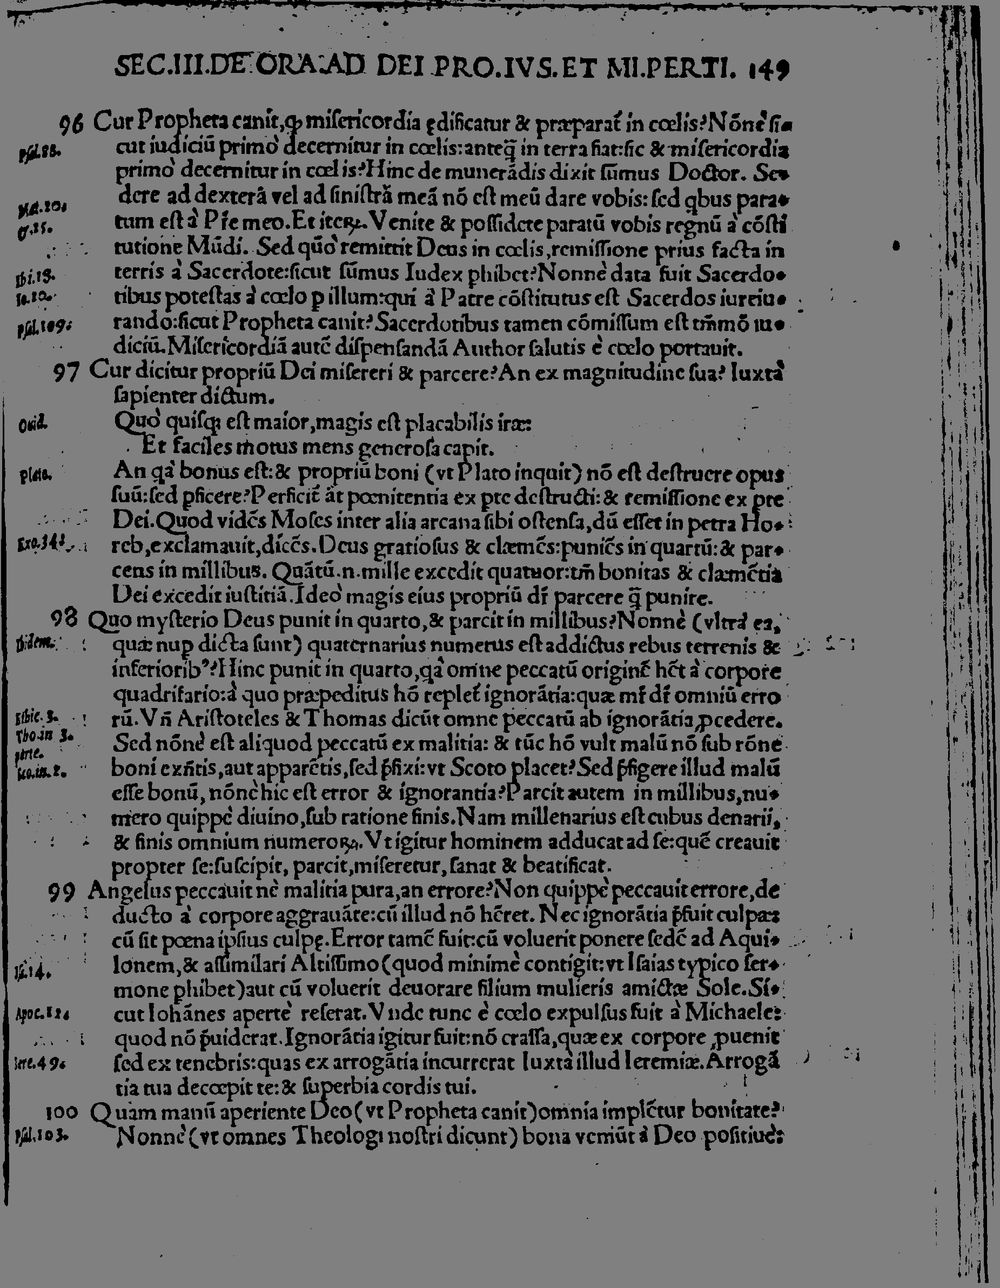 SEC.III.DE ORA:AD DEI PRO.IVS.ET MI.PERTI. 149
96 Cur Propheta canit,ꝙ misericordia ędificatur & præparat̃ in cœlis?Nõne si-
Psal.88. cut iudiciũ primò decernitur in cœlis:anteq̃ in terra fiat:sic & misericordia
primò decernitur in cœlis?Hinc de munerãdis dixit sũmus Doctor. Se-
dere ad dexterã vel ad sinistrã meã nõ est meũ dare vobis:sed qbus para-
Mat.20. tum est à Pr̃e meo.Et iteꝝ.Venite & possidete paratũ vobis regnũ à cõsti
& 25. tutione Mũdi. Sed quõ remittit Deus in cœlis,remissione prius facta in
Ibi.18. terris à Sacerdote:sicut sũmus Iudex phibet?Nonnè data fuit Sacerdo-
Io.20. tibus potestas à cœlo p illum:qui à Patre cõstitutus est Sacerdos iureiu-
Psal.109. rando:sicut Propheta canit?Sacerdotibus tamen cõmissum est tm̃mõ iu-
diciũ.Misericordiã autẽ dispensandã Author salutis è cœlo portauit.
97 Cur dicitur propriũ Dei misereri & parcere?An ex magnitudine sua? Iuxtà
sapienter dictum.
Ouid. Quò quisq; est maior,magis est placabilis iræ:
Et faciles motus mens generosa capit.
Plato. An qà bonus est:& propriũ boni (vt Plato inquit) nõ est destruere opus
suũ:sed pficere?Perficit̃ ãt pœnitentia ex pte destructi:& remissione ex pte
Dei.Quod vidẽs Moses inter alia arcana sibi ostensa,dũ esset in petra Ho-
Exo.34. reb,exclamauit,dicẽs.Deus gratiosus & clæmẽs:puniẽs in quartũ:& par-
cens in millibus. Quãtũ.n.mille excedit quatuor:tm̃ bonitas & clæmẽtia
Dei excedit iustitiã.Ideò magis eius propriũ dr̃ parcere q̃ punire.
98 Quo mysterio Deus punit in quarto,& parcit in millibus?Nonnè (vltrà ea,
Ibidem. quæ nup dicta sunt) quaternarius numerus est addictus rebus terrenis &
inferiorib⁹?Hinc punit in quarto,qà omne peccatũ originẽ hẽt à corpore
quadrifario:à quo præpeditus hõ replet̃ ignorãtia:quæ mr̃ dr̃ omniũ erro
Ethic.3. rũ.Vñ Aristoteles & Thomas dicũt omne peccatũ ab ignorãtia ꝓcedere.
Tho.in 3. Sed nõnè est aliquod peccatũ ex malitia: & tũc hõ vult malũ nõ sub rõne
parte.
Sco.in.2. boni exñtis,aut apparẽtis,sed p̃fixi:vt Scoto placet?Sed p̃figere illud malũ
esse bonũ,nõnè hic est error & ignorantia?Parcit autem in millibus,nu-
mero quippè diuino,sub ratione finis.Nam millenarius est cubus denarii,
& finis omnium numeroꝝ.Vt igitur hominem adducat ad se:quẽ creauit
propter se:suscipit, parcit,miseretur,sanat & beatificat.
99 Angelus peccauit nè malitia pura,an errore?Non quippè peccauit errore,de
ducto à corpore aggrauãte:cũ illud nõ hẽret. Nec ignorãtia p̃fuit culpæ:
cũ sit pœna ipsius culpę.Error tamẽ fuit:cũ voluerit ponere sedẽ ad Aqui-
Isa.14. lonem,& assimilari Altissimo(quod minimè contigit:vt Isaias typico ser-
mone phibet)aut cũ voluerit deuorare filium mulieris amictæ Sole.Si-
Apoc.12. cut Iohãnes apertè reserat.Vnde tunc è cœlo expulsus fuit à Michaele:
quod nõ p̃uiderat.Ignorãtia igitur fuit:nõ crassa,quæ ex corpore ꝓuenit
Iere.49. sed ex tenebris:quas ex arrogãtia incurrerat Iuxtà illud Ieremiæ.Arrogã
tia tua decœpit te:& superbia cordis tui.
100 Quam manũ aperiente Deo(vt Propheta canit)omnia implẽtur bonitate?
Psal.103. Nonnè(vt omnes Theologi nostri dicunt) bona veniũt à Deo positiuè: